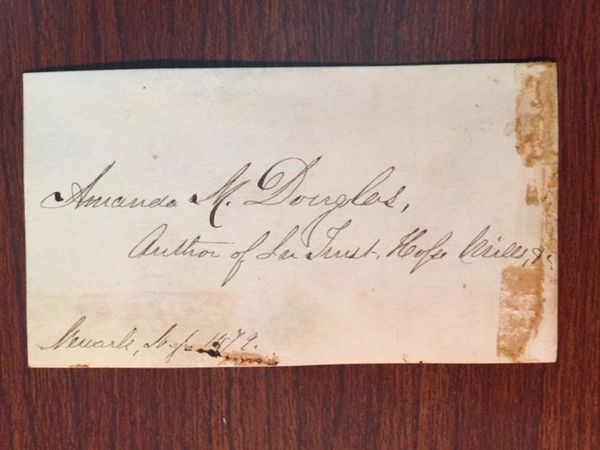 Amanda M. Douglas,
Author of In Trust, Hope Mills, &c
Newark, 1879.